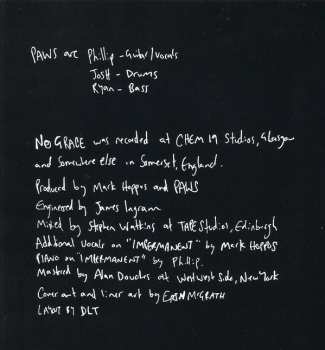 PAWS are Phillip - Guitar/Vocals
Josh - Drums
Ryan - Bass
No GRACE was recorded at CHEM 19 Studios, Glasgow
and somewhere else in Somerset, England.
Produced by Mark Hoppus and PAWS
Engineered by James Ingram
Mixed by Stephen Watkins at TAPE Studios, Edinburgh
Additional Vocals on "IMPERMANENT" by Mark HOPPUS
PIANO on "IMPERMANENT" by Phillip.
Mastered by Alan Douches at West West Side, New York
Cover art and liner art by ERIN McGRATH
LAYOUT BY DLT